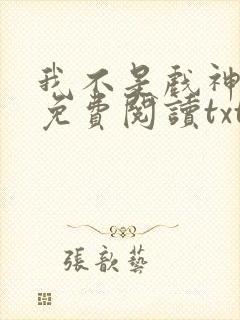 我不是戲神
免費閱讀txt
張歆藝